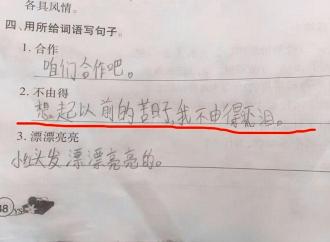 各具风情。
四、用所给词语写句子。
1. 合作
咱们合作吧。
2. 不由得
想起以前的苦日子,我不由得流泪。
3. 漂漂亮亮
头发漂漂亮亮的。
48